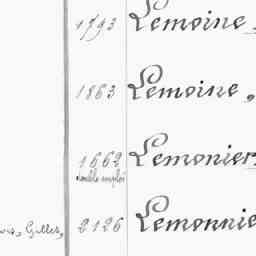 1793 Lemoine,
1863 Lemoine,
1662 Lemonier,
double emploi
Gilles, 2126 Lemonnie